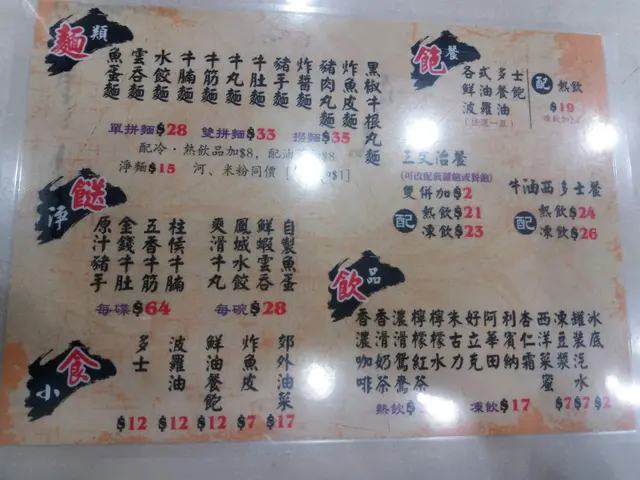 麵類
魚蛋麵
雲吞麵
水餃麵
牛腩麵
牛筋麵
牛丸麵
牛肚麵
豬手麵
炸醬麵
豬肉丸麵
炸魚皮麵
黑椒牛根丸麵
單拼麵$28 雙拼麵$33 撈麵$35
配冷·熱飲品加$8,配油
淨麵$15 河、米粉同價
淨餸
原汁豬手
金錢牛肚
五香牛筋
柱侯牛腩
每碟$64
爽滑牛丸
鳳城水餃
鮮蝦雲吞
自製魚蛋
每碗$28
小食
多士 $12
波羅油 $12
鮮油餐飽 $12
炸魚皮 $7
郊外油菜 $17
飽餐
各式多士
鮮油餐飽
波羅油
配 熱飲
$19
三文治餐
雙併加$2
配 熱飲$21
凍飲$23
牛油西多士餐
熱飲$24
凍飲$26
飲品
香濃咖啡
香滑奶茶
濃滑鴛鴦
檸檬紅茶
檸檬水
朱古力
好立克
阿華田
利賓納
杏仁霜
西洋菜蜜
凍豆漿
罐裝汽水
冰底
熱飲$ 凍飲$17 $7 $7 $2